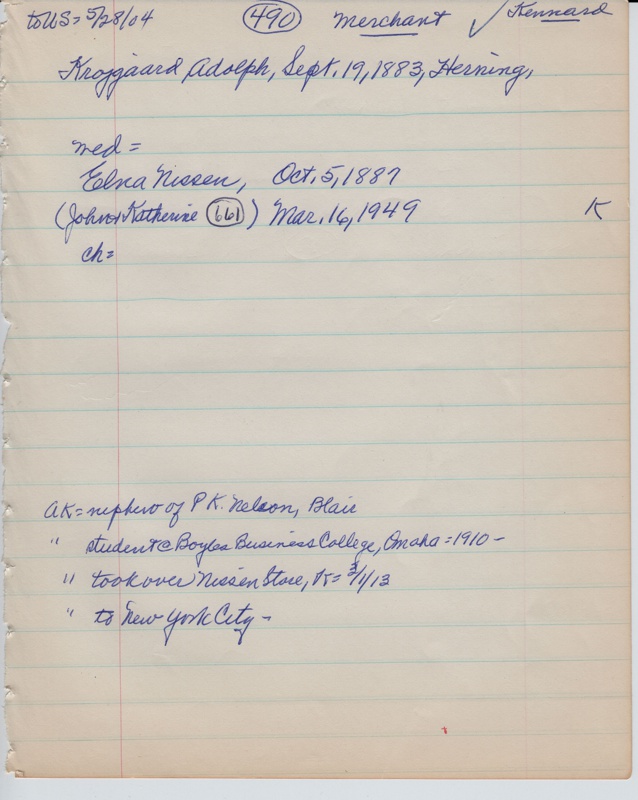 to US = 5/28/04 490 Merchant ✓ Kennard
Krojgaard Adolph, Sept. 19, 1883, Herning,
med =
Elna Nissen, Oct. 5, 1887
(John & Katherine 661) Mar. 16, 1949 K
ch =
AK = nephew of P K. Nelson, Blair
" student @ Boyles Business College, Omaha = 1910 -
" took over Nissen Store, K = 3/1/13
" to New York City -